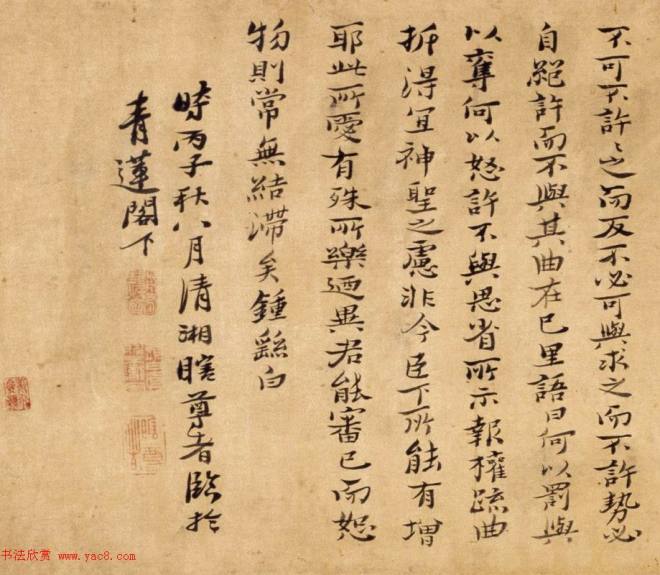 不可不許之而反不必可與求之而不許勢必
自絕許而不與其曲在已里語曰何以罰與
以奪何以怒許不與思省所示報權疏曲
折得宜神聖之慮非今臣下所能有增
耶此所愛有殊所樂迺異君能審已而恕
物則常無結滯矣鍾繇白
時丙子秋八月清湘瞎尊者臨於
青蓮閣下
书法欣赏 www.yac8.com